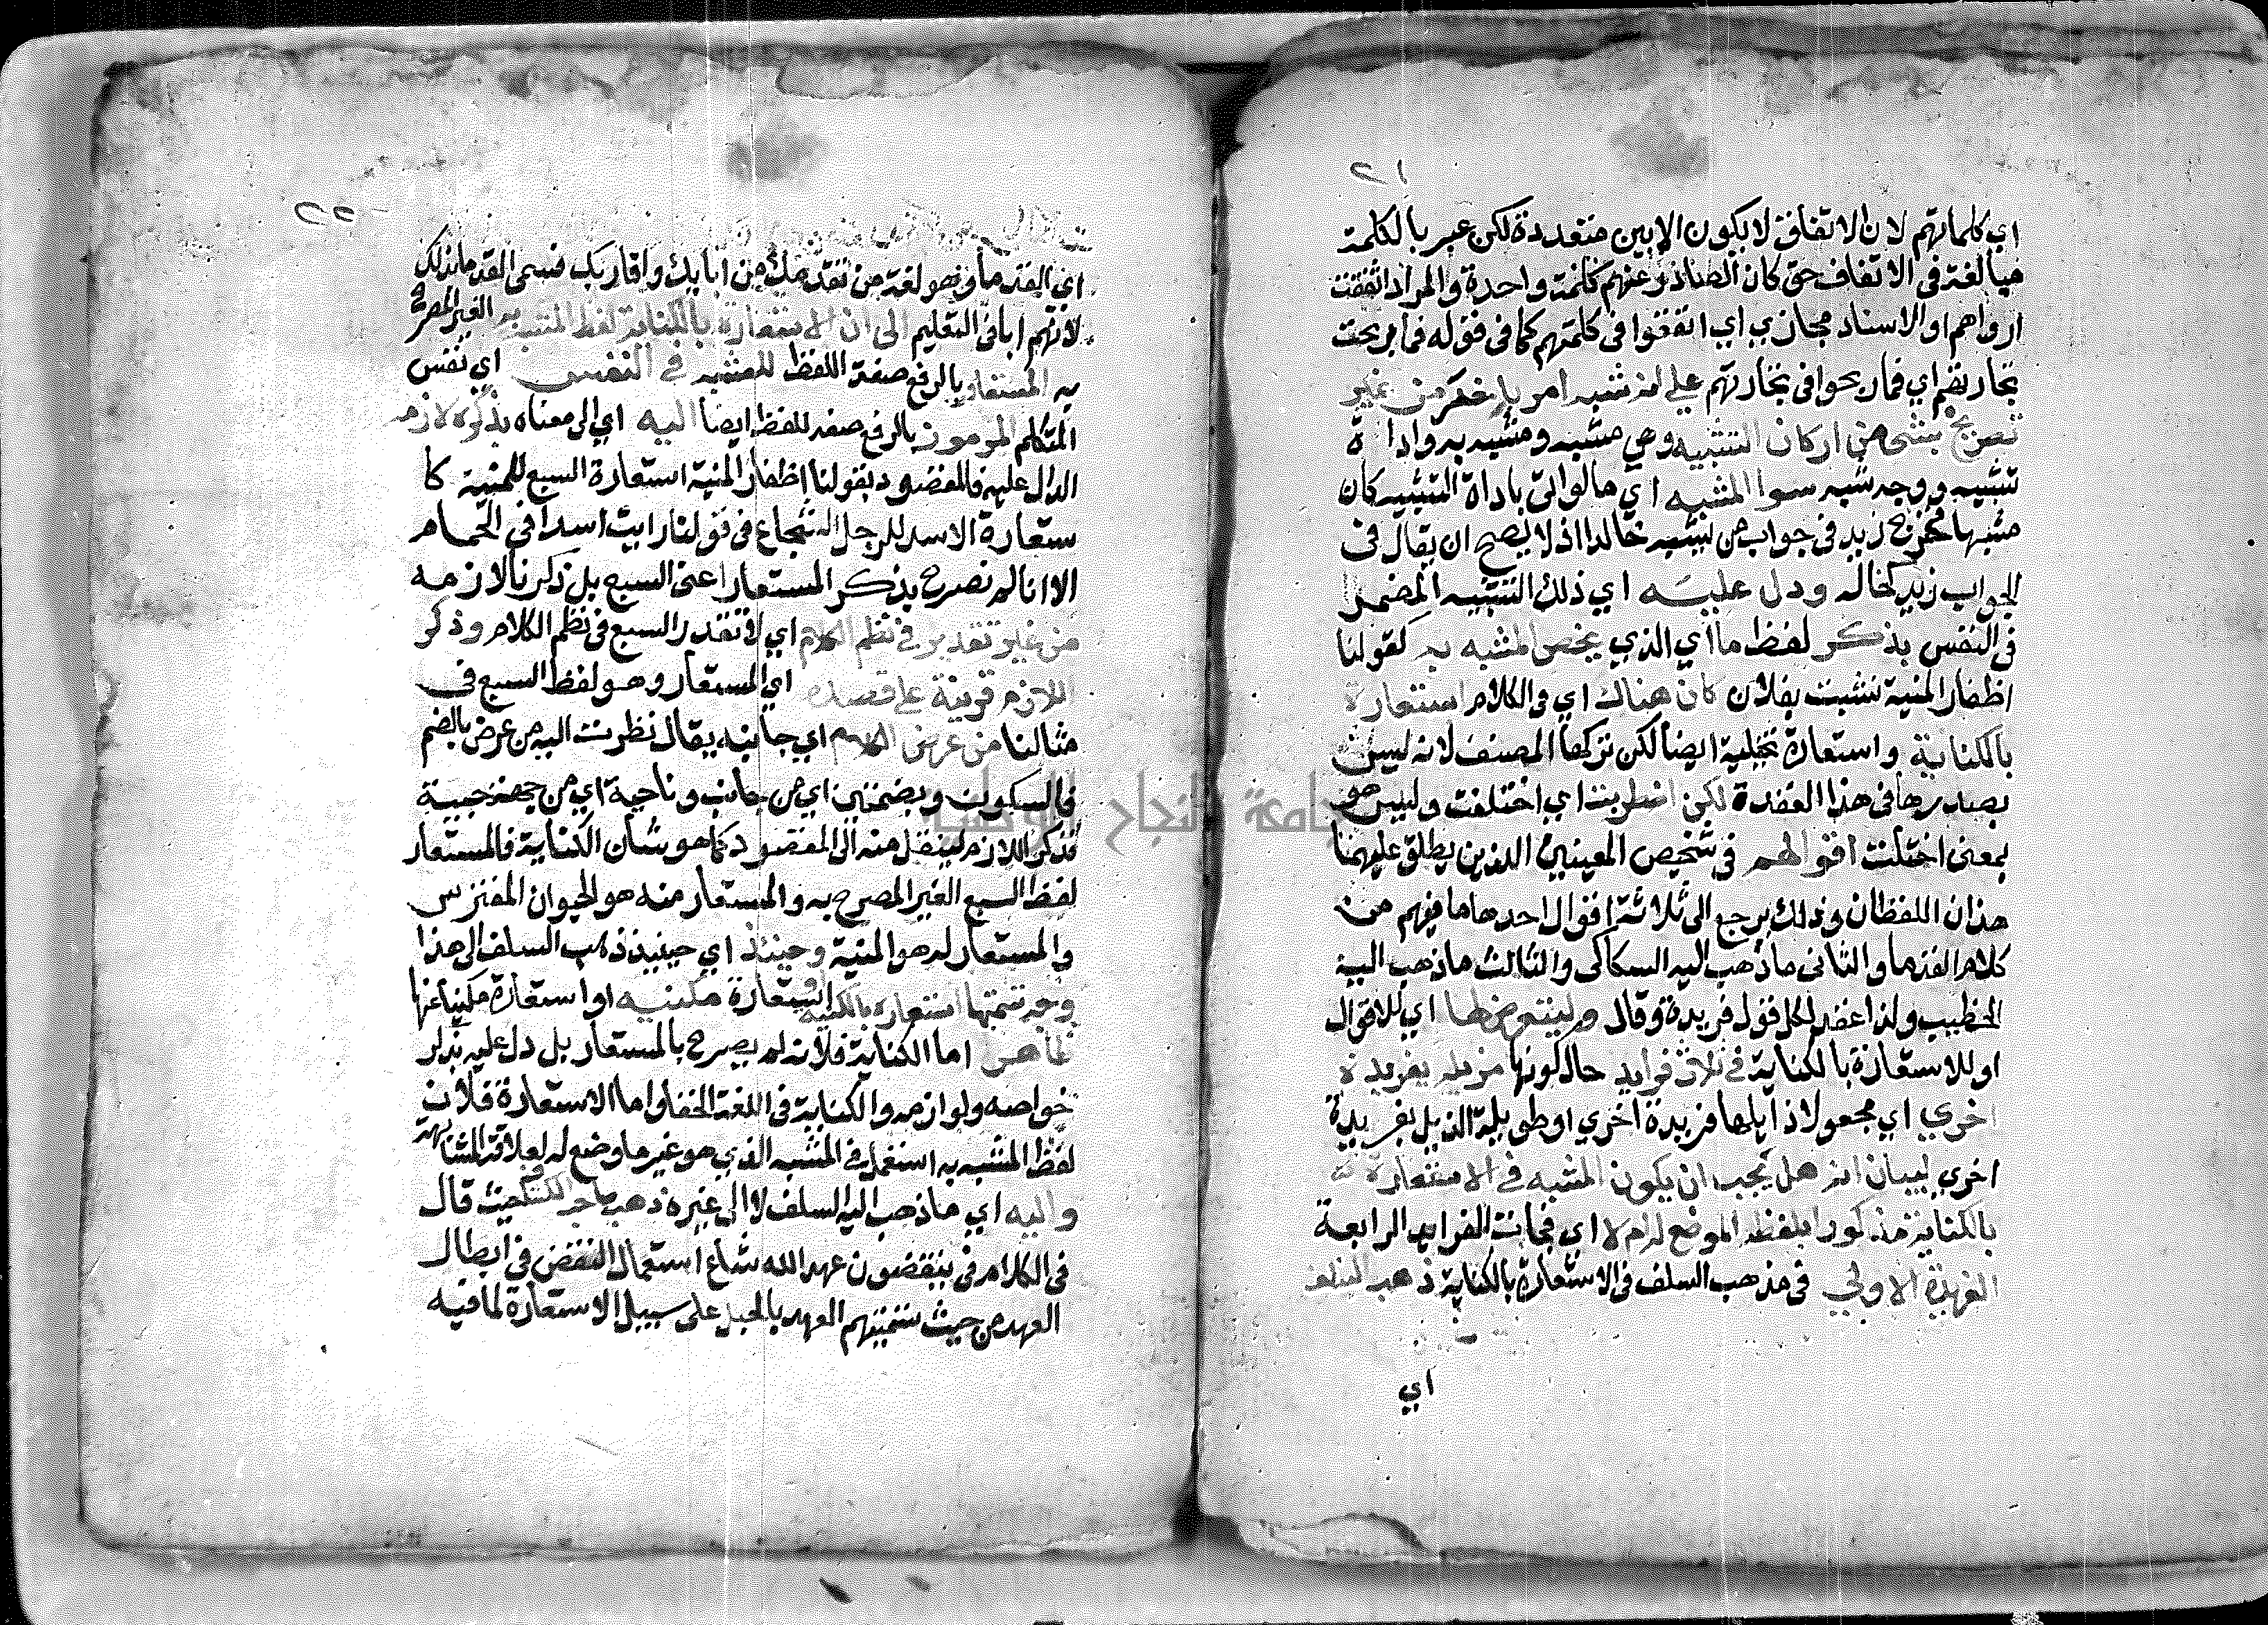 ٢١
اي كلماتهم لان الاتفاق لا يكون الا بين متعددة لكن عبر بالكلمة
مبالغة في الاتفاق حتى كان الصادر عنهم كلمة واحدة والمراد اتفقت
ارواهم او الاسناد مجازي اي اتفقوا في كلمتهم كما في قوله فما ربحت
تجارتهم اي فما ربحوا في تجارتهم على انه شبه امر باخر من غير
تصريح بشي من اركان التشبيه وهي مشبه ومشبه به واداة
تشبيه ووجه شبه سوا المشبه اي مالوالى باداة التشبيه كان
مشبها فخرج زيد في جواب من يشبه خالدا اذ لا يصح ان يقال في
الجواب زيد كخالد ودل عليه اي ذلك التشبيه المضمر
في النفس بذكر لفظ ما اي الذي يخص المشبه به كقولنا
اظفار المنية نشبت بفلان كان هناك اي في الكلام استعارة
بالكناية واستعارة تخيلية ايضا لكن تركها المصنف لانه ليس
بصددها في هذا العقدة لكن اضطربت اي اختلفت وليس هو
بمعنى اختلت اقوالهم في تشخيص المعنيين اللذين يطلق عليهما
هذان اللفظان وذلك يرجع الى ثلاثة اقوال احدها ما فهم من
كلام القدما والثاني ما ذهب اليه السكاكي والثالث ما ذهب اليه
الخطيب ولذا عقد لكل قول فريدة وقال ولنتعرض لها اي للاقوال
او للاستعارة بالكناية في ثلاث فرايد حال كونها مزيلة بفريدة
اخري اي مجعولا ذايلها فريدة اخري او طويلة الذيل بفريدة
اخري لبيان انه هل يجب ان يكون المشبه في الاستعارة
بالكناية مذكورا بلفظه الموضع له ام لا اي فجات الفرايد الرابعة
الفريدة الاولي في مذهب السلف في الاستعارة بالكناية ذهب السلف
اي
٢٢
اي القدما وهو لغة من تقدمك من ابايك واقاربك فسمى القدما بذلك
لانهم ابا في التعليم الى ان الاستعارة بالكناية لفظ المشبه به الغير المصرح
به المستعار بالرفع صفة اللفظ للمشبه في النفس اي نفس
المتكلم المرموز بالرفع صفه للفظ ايضا اليه اي الى معناه بذكره لازمه
الدال عليه فالمقصود بقولنا اظفار المنية استعارة السبع للمنية كا
ستعارة الاسد للرجل الشجاع في قولنا رايت اسدا في الحمام
الا انا لم نصرح بذكر المستعار اعني السبع بل ذكرنا لازمه
من غير تقدير في نظم الكلام اي لا تقدر السبع في نظم الكلام وذكر
اللازم قرينة على قصده اي المستعار وهو لفظ السبع في
مثالنا من عرض الكلام اي جانبه يقال نظرت اليه من عرض بالضم
فالسكون وبضمتين اي من جانب وناحية اي من جهة حبيبة
فذكر اللازم لينتقل منه الى المقصود كما هو شان الكناية فالمستعار
لفظ السبع الغير المصرح به والمستعار منه هو الحيوان المفترس
والمستعار له هو المنية وحينئذ اي حينيذ ذهب السلف الى هذا
وجه تسميتها استعارة بالكنيه او استعارة مكنيه او استعارة مكنيا عنها
ظاهر اما الكناية فلانه لم يصرح بالمستعار بل دل عليه بذكر
خواصه ولوازمه والكناية في اللغة الخفا واما الاستعارة فلان
لفظ المشبه به استعمل في المشبه الذي هو غير ما وضع له لعلاقة المشابهة
واليه اي ما ذهب اليه السلف لا الى غيره ذهب صاحب الكشاف حيث قال
في الكلام في ينقضون عهد الله شاع استعمال النقض في ابطال
العهد من حيث تسميتهم العهد بالحبل على سبيل الاستعارة لما فيه